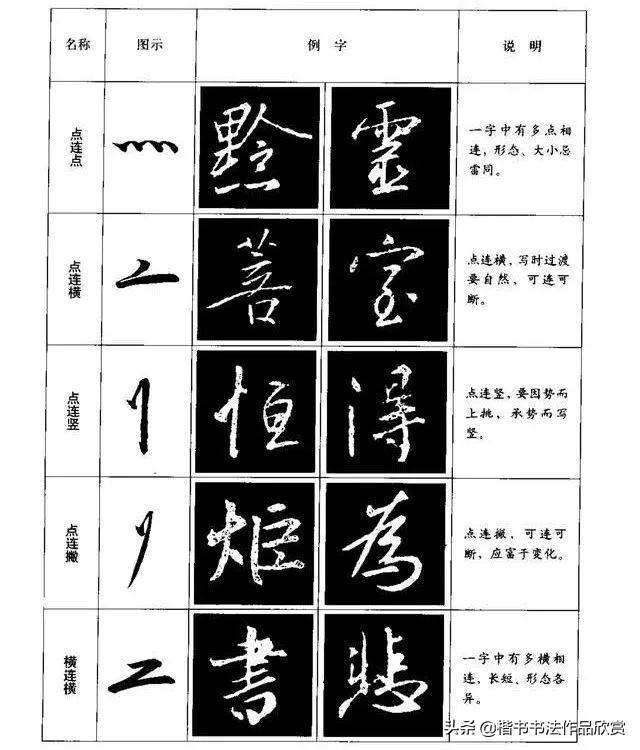 名称 图示 例 字 说 明
点连点 黔 靈 一字中有多点相
连，形态、大小忌
雷同。
点连横 菩 室 点连横，写时过渡
要自然、可连可
断。
点连竖 恒 得 点连竖，要因势而
上挑，承势而写
竖。
点连撇 炬 為 点连撇，可连可
断，应富于变化。
横连横 書 悲 一字中有多横相
连，长短、形态各
异。
头条 @楷书书法作品欣赏